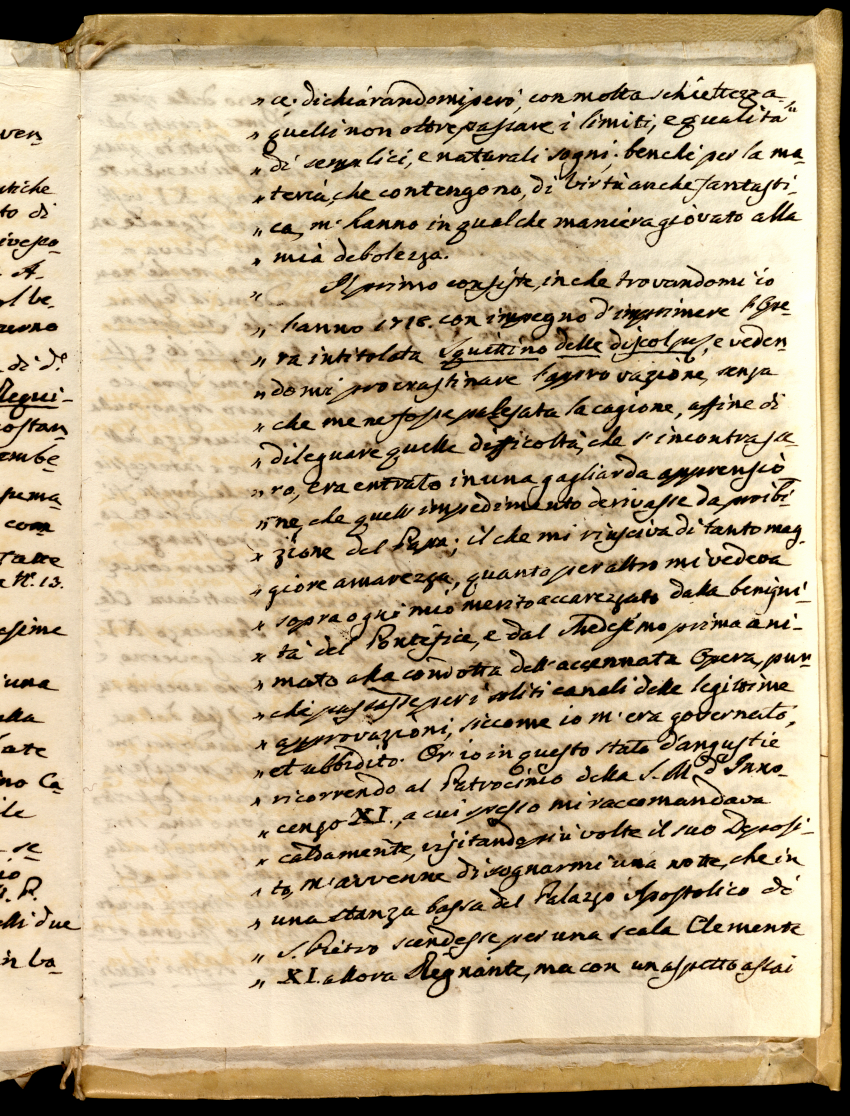 ven
stiche
to di
ivesco-
A-
el be-
verno
di d.º
Requi-
ostan
embe
puma-
com
Tatte
a N.º 13.
esime
una
alla
tate
ino Ca
ile
se
no
S. P.
elli due
in ba-
„ ce. dichiarandomi però, con molta schiettezza
„ quelli non oltrepassare i limiti, e qualità
„ di semplici, e naturali sogni; benchè per la ma-
„ teria, che contengono, di virtù anche fantasti-
„ ca, m'hanno in qualche maniera giovato alla
„ mia debolezza.
„ Il primo consiste, in che trovandomi io
„ l'anno 1718. con impegno d'imprimere l'Ope-
„ ra intitolata Squittino delle discolpe, e veden
„ domi procrastinare l'approvazione, senza
„ che me ne fosse palesata la cagione, affine di
„ dileguare quelle difficoltà, che s'incontrasse-
„ ro, era entrato in una gagliarda apprensio
„ ne, che quell'impedimento derivasse da proibi-
„ zione del Papa; il che mi riusciva di tanto mag-
„ giore amarezza, quanto per altro mi vedeva
„ sopra ogni mio merito accarezzato dalla benigni-
„ tà del Pontefice, e dal Medesimo prima ani-
„ mato alla condotta dell'accennata Opera, pur
„ chè passasse per i soliti canali delle legittime
„ approvazioni, siccome io m'era governato,
„ et ubbidito. Or io in questo stato d'angustie
„ ricorrendo al Patrocinio della S. M. d'Inno-
„ cenzo XI., a cui spesso mi raccomandava
„ caldamente, visitando più volte il suo Deposi-
„ to, m'avvenne di sognarmi una notte, che in
„ una stanza bassa del Palazzo Apostolico di
„ S. Pietro scendesse per una scala Clemente
„ XI. allora Regnante, ma con un aspetto assai